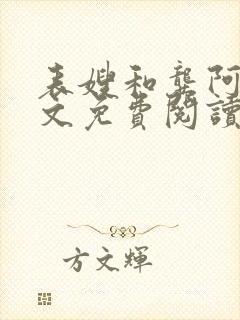 表嫂和龚阿
文免費閱讀
方文輝